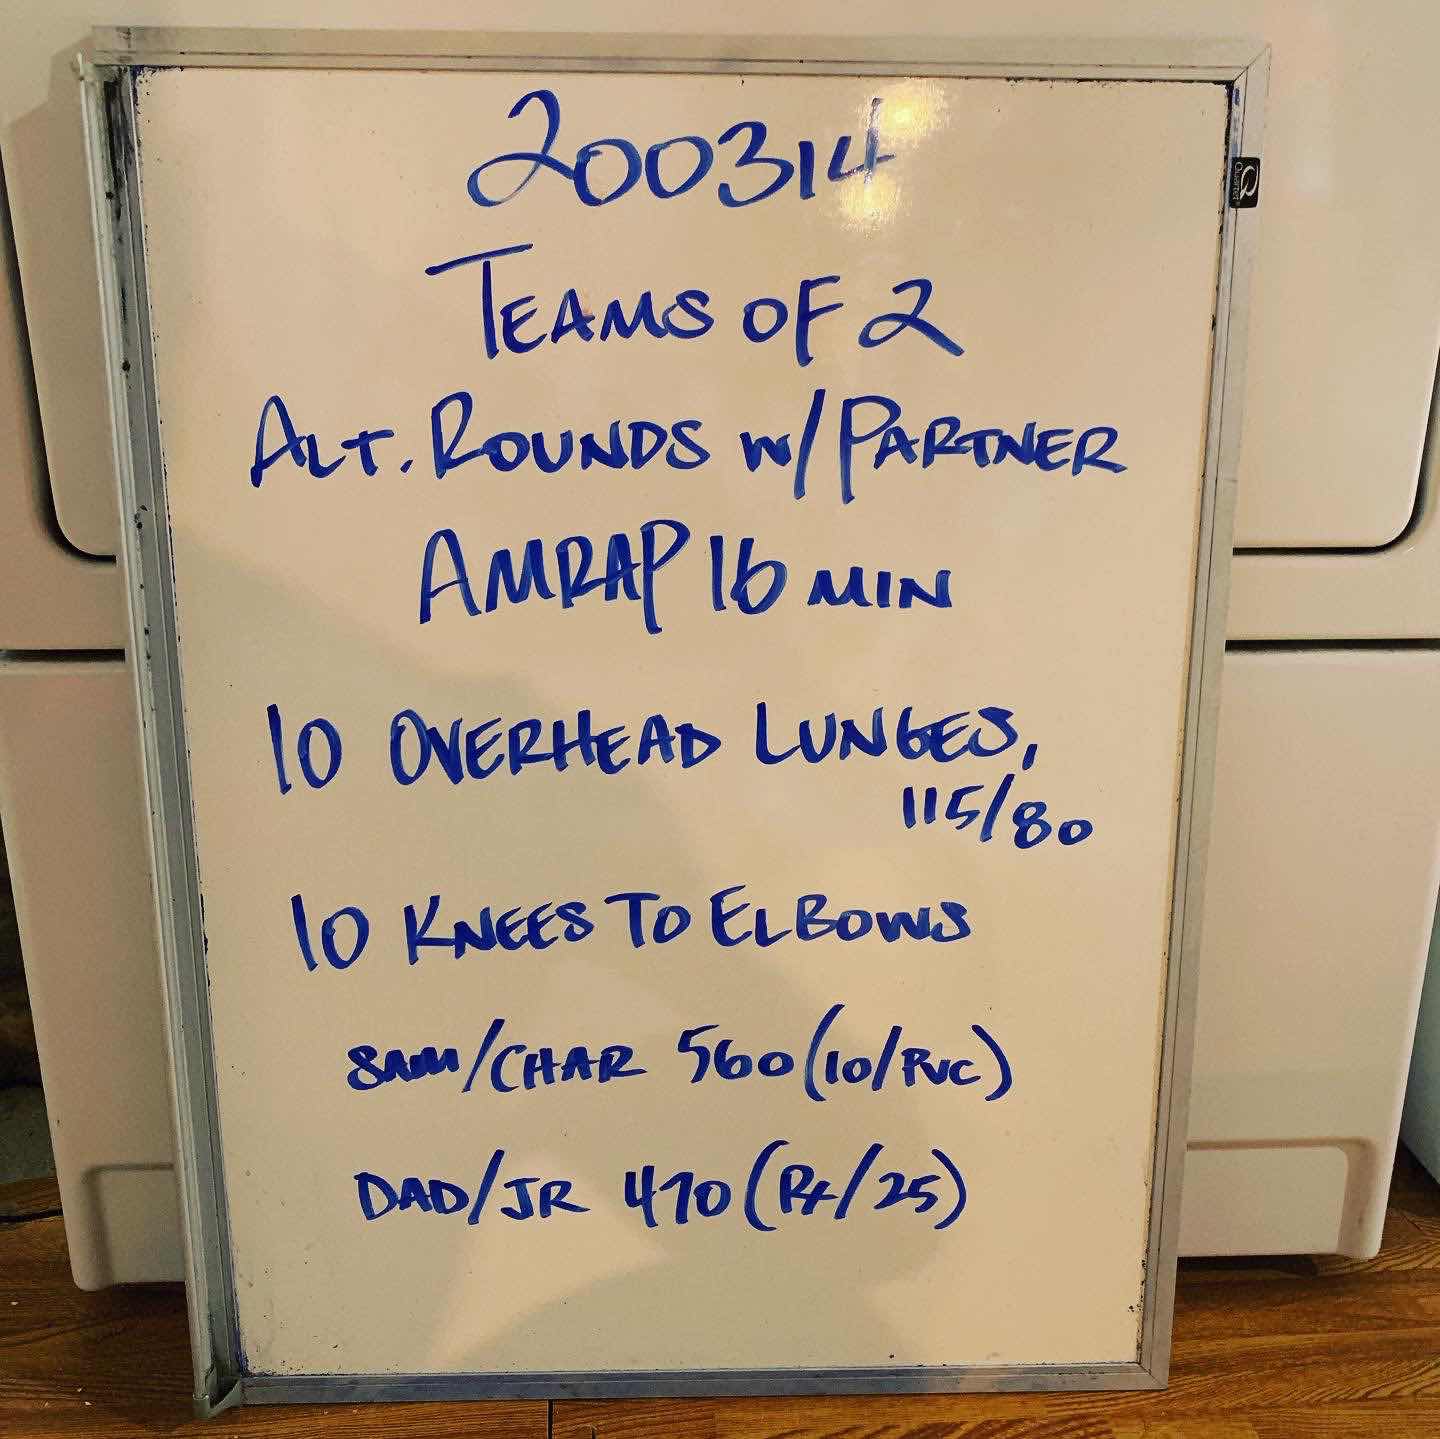 200314
TEAMS OF 2
ALT. ROUNDS W/ PARTNER
AMRAP 16 MIN
10 OVERHEAD LUNGES,
115/80
10 KNEES TO ELBOWS
SAM/CHAR 560 (10/PVC)
DAD/JR 470 (RX/25)
Quartet